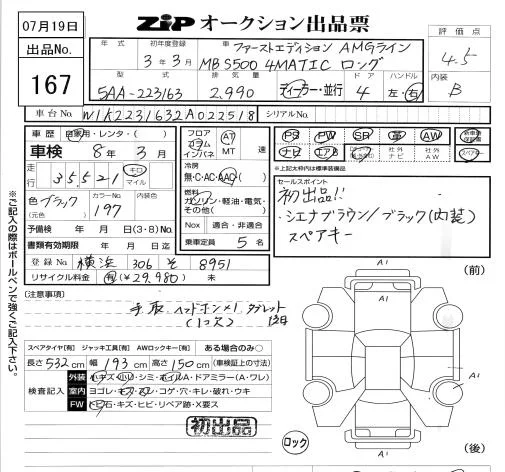 07月19日
ZiP オークション出品票
出品No.
167
評価点
4.5
内装
B
年式
初年度登録
3年3月
車名
ファーストエディション AMGライン
MB S500 4MATIC ロング
型式
5AA-223163
排気量
2,990
ディーラー・並行
ドア
4
ハンドル
左・右
車台No.
W1K2231632A022518
シリアルNo.
車歴 自家用・レンタ・( )
車検 8年3月
走行 35,521 キロ マイル
色 ブラック
(元色)
カラーNo.
197
内装色
予備検 年 月 日(3・8)No.
書類有効期限 年 月 日迄
登録No. 横浜 306 そ 8951
リサイクル料金 有(¥29,980) 未
フロア
コラム
インパネ
AT
MT
速
冷房
無・C・AC・AAC
燃料
ガソリン・軽油・電気・
その他( )
Nox 適合・非適合
乗車定員 5名
PS PW SR 革 AW 新車時保証書
ナビ エアB 社外ナビ 社外AW スペアキー
*上記太枠内は標準装備品
セールスポイント
初出品!!
・シエナブラウン/ブラック(内装)
スペアキー
※ご記入の際はボールペンで強くご記入下さい。
(注意事項)
手取 ヘッドホン×1 タブレット
スペアタイヤ[有] ジャッキ工具[有] AWロックキー[有] ある場合のみ○
長さ 532cm 幅 193cm 高さ 150cm (車検証上の寸法)
検査記入
外装 小キズ・小凹・シミ・ホイルA・ドアミラー(A・ワレ)
室内 ヨゴレ・キズ・スレ・コゲ・穴・キレ・破れ・ウキ
FW トビ石・キズ・ヒビ・リペア跡・X要ス
初出品
ロック
A1
(前)
A1
A1
A1
(後)